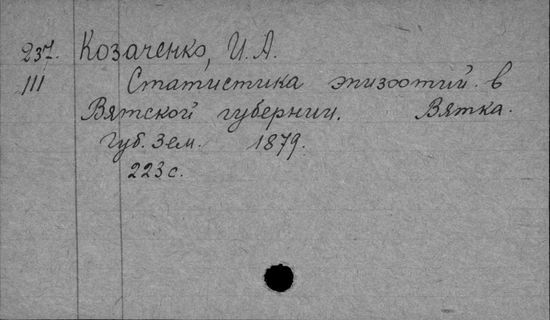 237. Козаченко, И. А.
III Статистика эпизоотий в
Вятской губернии. Вятка.
Губ. Зем. 1879.
223 с.